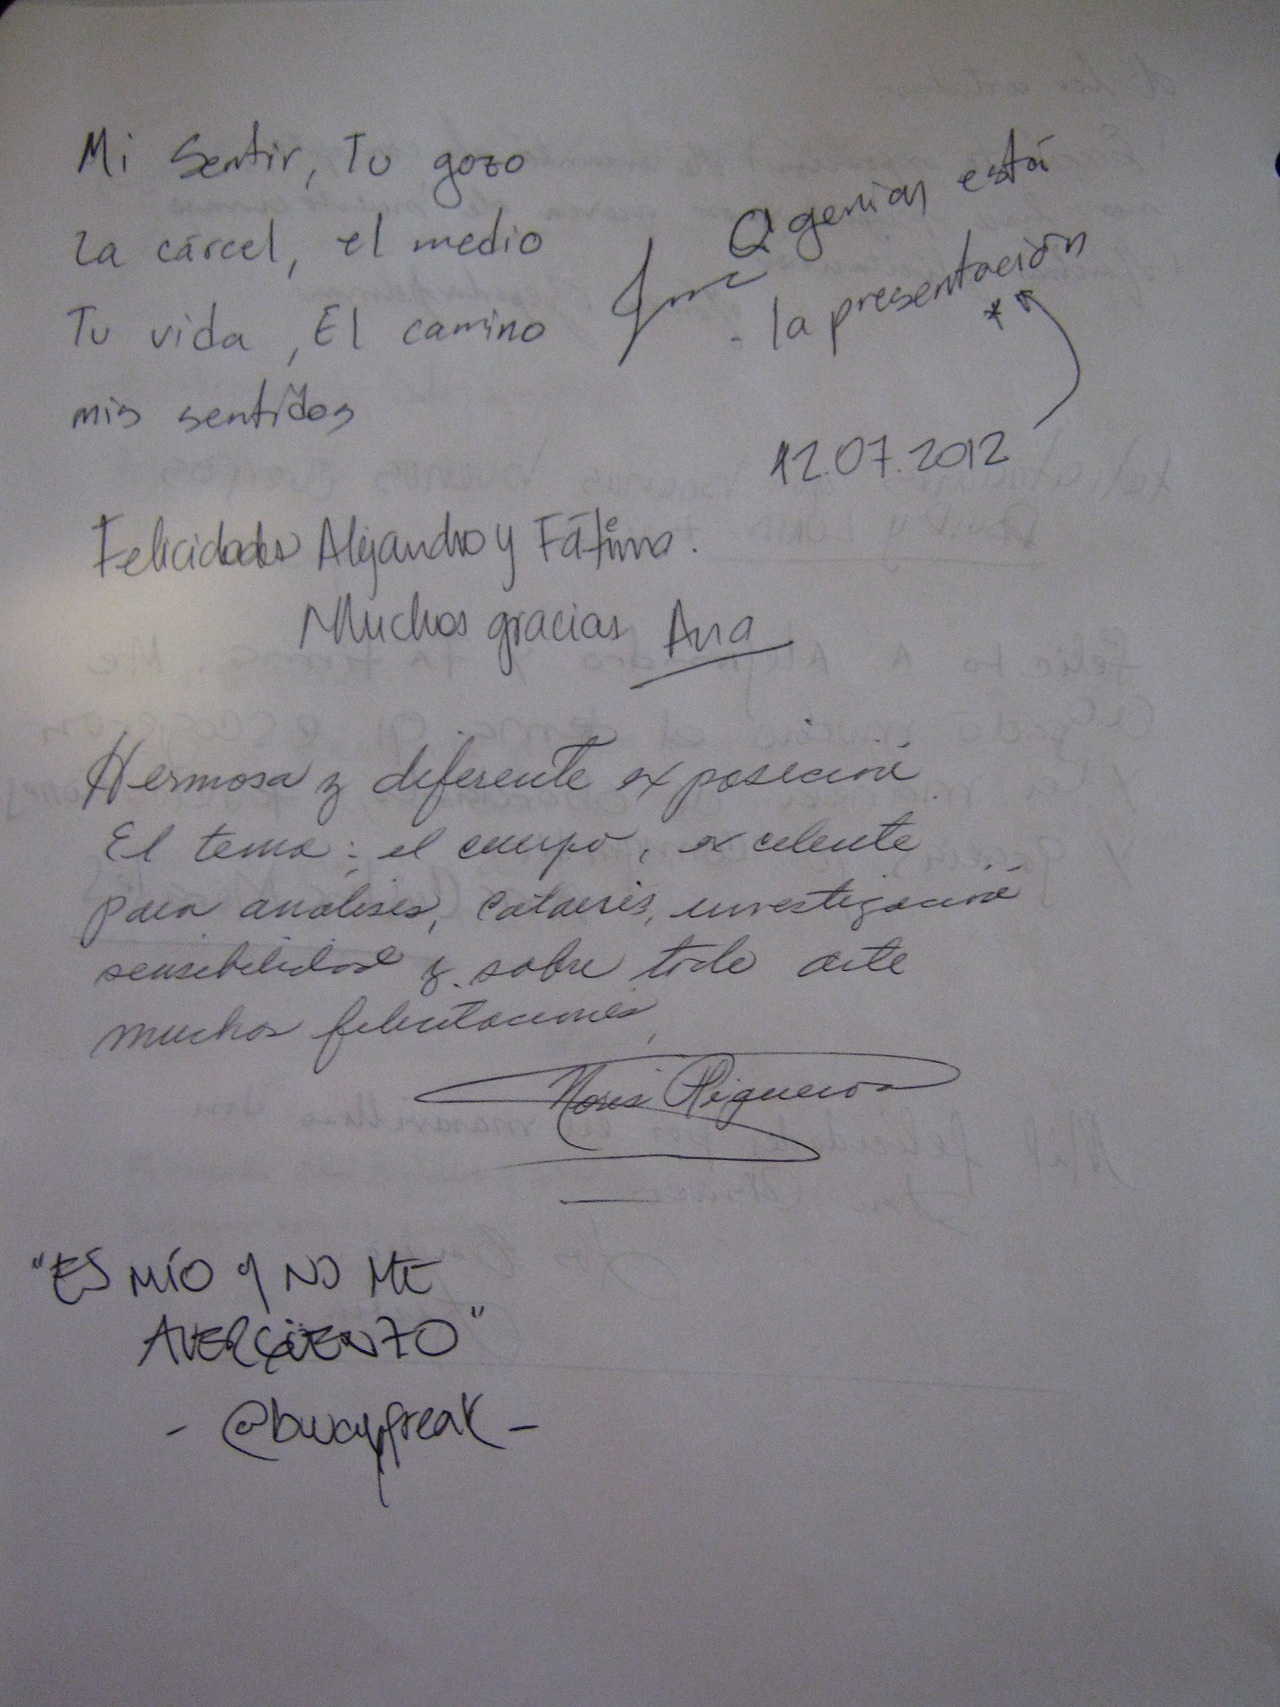 Mi Sentir, Tu gozo
La cárcel, el medio
Tu vida, El camino
mis sentidos
Q genial está
la presentación
*
12.07.2012
Felicidades Alejandro y Fátima.
Muchas gracias Ana
Hermosa y diferente exposición
El tema: el cuerpo, excelente
para análisis, catarsis, investigación
sensibilidad y sobre todo arte
muchas felicitaciones
"ES MÍO Y NO ME
AVERGÜENZO"
- @bwayfreak -